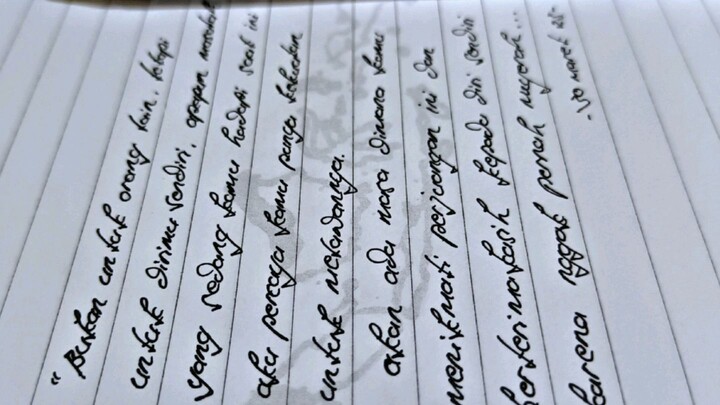 " Bukan untuk orang lain, tetapi
untuk dirimu sendiri, apapun masalah
yang sedang kamu hadapi saat ini
aku percaya kamu punya kekuatan
untuk melawannya.
akan ada masa dimana kamu
menikmati perjuangan ini dan
berterimakasih kepada diri sendiri
karena nggak pernah nyerah...
- 30 maret 25-